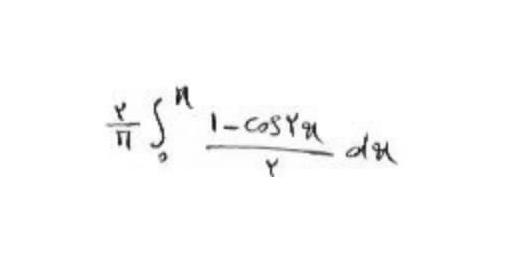 ۲/π ∫₀^π (۱-cos۲x)/۲ dx